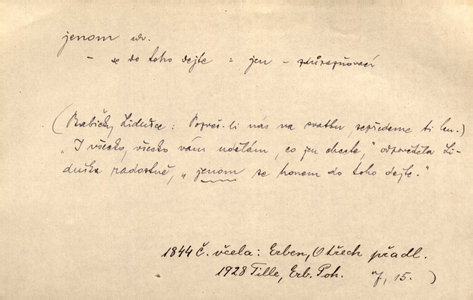 jenom adv.
– se do toho dejte = jen – zdůrazňovací
(Babičk, Liduše: Pozveš-li nas na svatbu sezpředeme ti len.)
„I všecko, všecko vám udělám, co jen chcete,“ odpověděla Li-
duška radostně, „jenom se honem do toho dejte.“
1844 Č. včela: Erben, O třech přadl.
1928 Tille, Erb. Poh. 7, 15. )